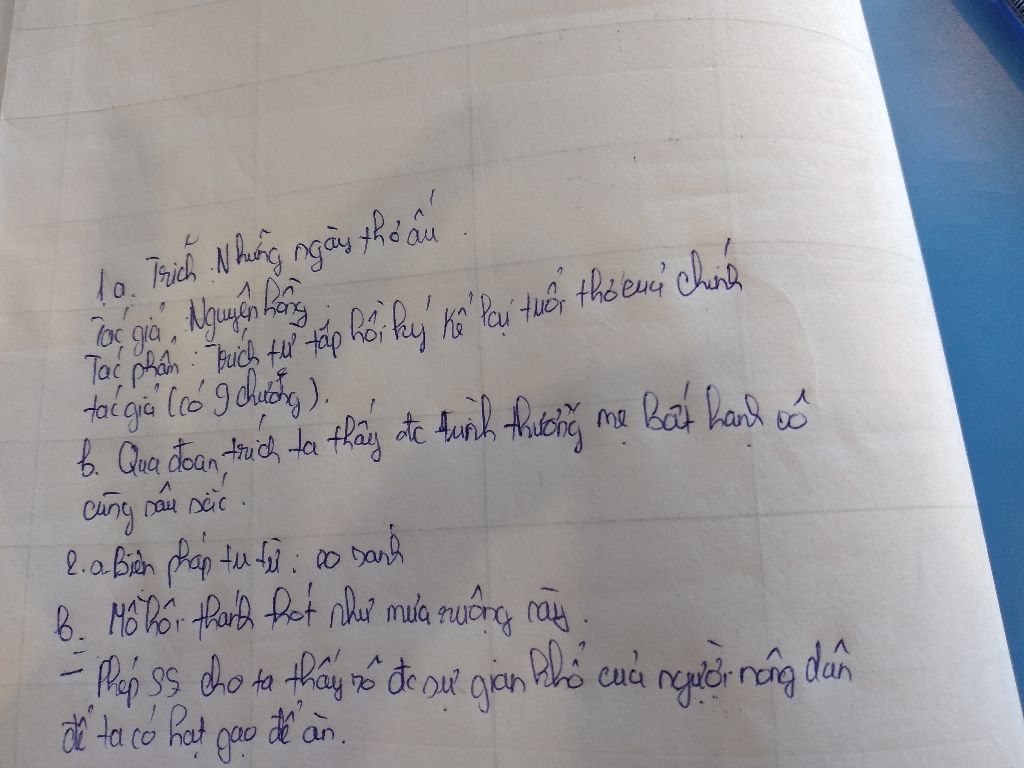 1.a. Trích Những ngày thơ ấu.
Tác giả: Nguyên Hồng
Tác phẩm: Trích từ tập hồi ký kể lại tuổi thơ của chính
tác giả (có 9 chương).
b. Qua đoạn trích ta thấy đc tình thương mẹ bất hạnh vô
cùng sâu sắc.
2.a. Biện pháp tu từ: so sánh
b. Mồ hôi thánh thót như mưa ruộng cày.
= Phép SS cho ta thấy rõ đc sự gian khổ của người nông dân
để ta có hạt gạo để ăn.